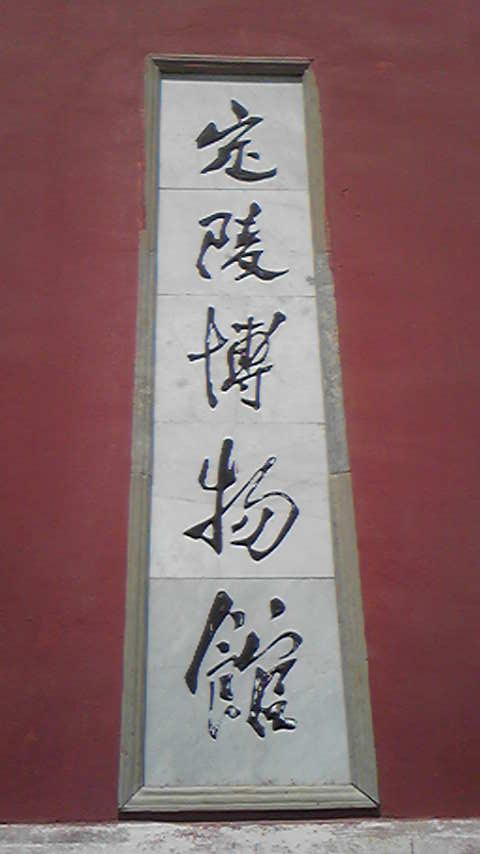 定陵博物館